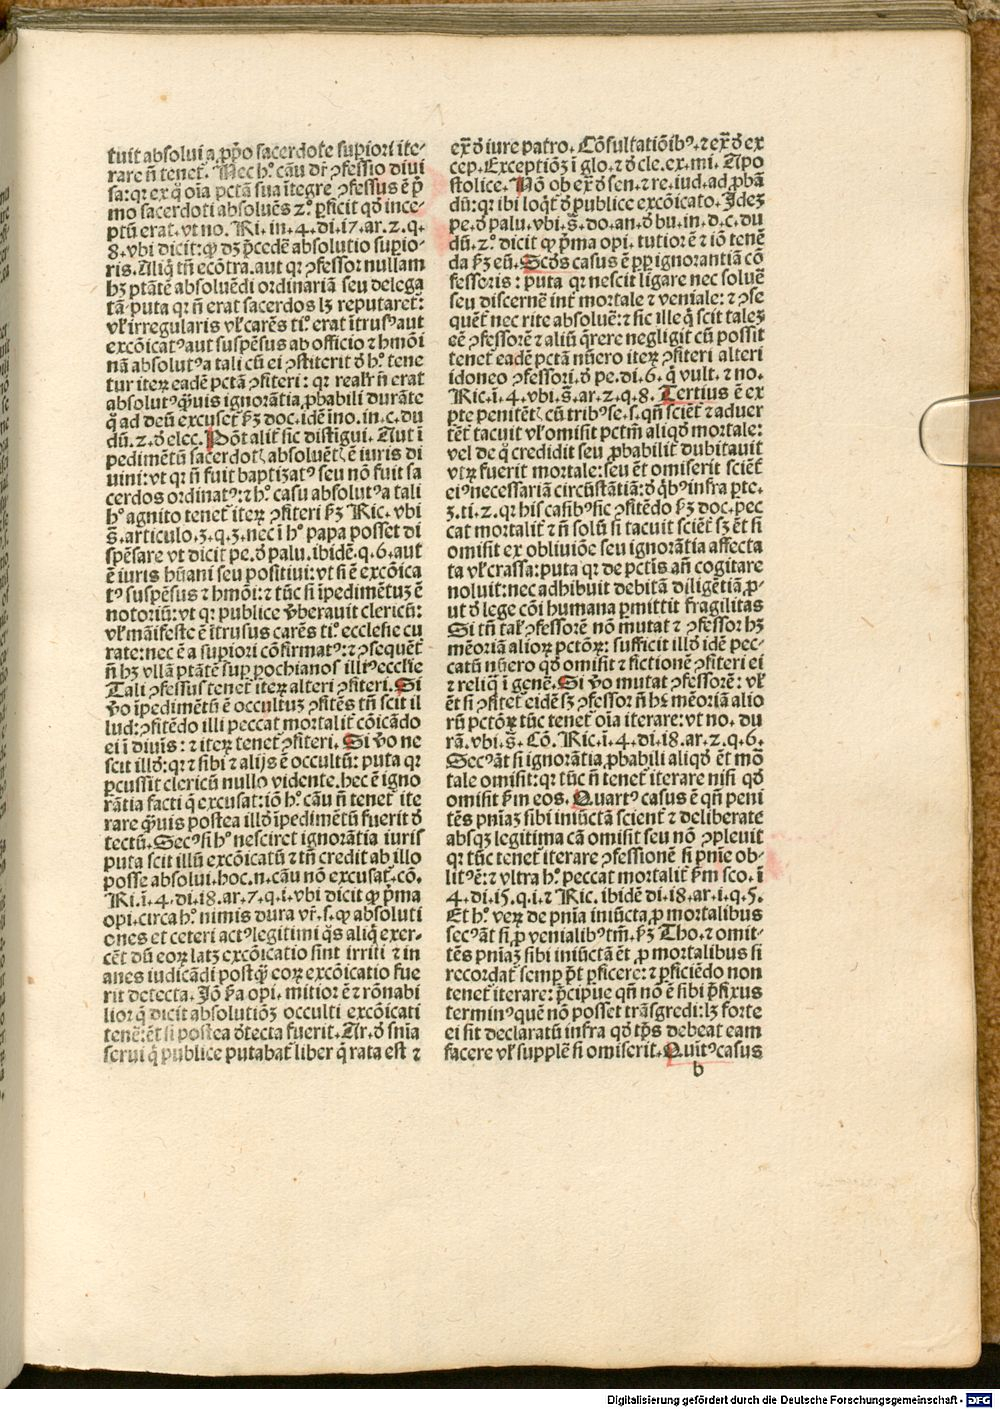 tuit absolui a ꝓpo sacerdote supiori ite-
rare ñ tenet᷑. Nec hº cãu dr̃ ꝯfessio diui
sa: qꝛ ex q̊ oĩa pctã sua ĩtegre ꝯfessus ẽ p̃
mo sacerdoti absoluẽs zº. ꝑficit qđ ince-
ptũ erat. vt no. Ri. in. 4. di. 17. ar. z. q.
8. vbi dicit: ꝙ dꝫ p̃cedẽ absolutio supio-
ris. Aliq̃ tñ ecõtra. aut qꝛ ꝯfessor nullam
hꝫ ptãtẽ absoluẽdi ordinariã seu delega
tã. puta qꝛ ñ erat sacerdos lꝫ reputaret᷑:
vl̕ irregularis vl̕ carẽs ti.º erat ĩtrusꝰ aut
excõicatꝰ aut suspẽsus ab officio ⁊ hmõi
nã absolutꝰ a tali cũ ei ꝯstiterit đ hº tene
tur iteꝝ eadẽ pctã ꝯfiteri: qꝛ realr̕ ñ erat
absolutꝰ q̃uis ignorãtia ꝓbabili durãte
q̊ ad deũ excuset᷑ ẜꝫ doc. idẽ ino. in. c. du
dũ. z. đ elec. Põt alit᷑ sic distigui. Aut ĩ
pedimẽtũ sacerdotꝭ absoluẽtꝭ ẽ iuris di
uini: vt qꝛ ñ fuit baptizatꝰ seu nõ fuit sa
cerdos ordinatꝰ: ⁊ hº casu absolutꝰ a tali
hº agnito tenet᷑ iteꝝ ꝯfiteri ẜꝫ Ric. vbi
s̃. articulo. 3. q. 3. nec ĩ hº papa posset di
spẽsare vt dicit pe. đ palu. ibidẽ. q. 6. aut
ẽ iuris hũani seu positiui: vt si ẽ excõica
tꝰ suspẽsus ⁊ hmõi: ⁊ tũc si ĩpedimẽtuꝫ ẽ
notoriũ: vt qꝛ publice v̕berauit clericũ:
vl̕ mãifeste ẽ ĩtrusus carẽs ti.º ecclesie cu
rate: nec ẽ a supiori cõfirmatꝰ: ⁊ ꝯsequẽt᷑
ñ hꝫ vllã ptãtẽ sup ꝑochianos illiꝰ ecclie
Tali ꝯfessus tenet᷑ iteꝝ alteri ꝯfiteri. Si
v̕o ĩpedimẽtũ ẽ occultuꝫ ꝯfitẽs tñ scit il
lud: ꝯfitẽdo illi peccat mortalit᷑ cõicãdo
ei ĩ diuĩs: ⁊ iteꝝ tenet᷑ ꝯfiteri. Si v̕o ne
scit illđ: qꝛ ⁊ sibi ⁊ alijs ẽ occultũ: puta qꝛ
ꝑcussit clericũ nullo vidente. hec ẽ igno
rãtia facti q̃ excusat: iõ hº cãu ñ tenet᷑ ite
rare q̃uis postea illđ ĩpedimẽtũ fuerit đ
tectũ. Secꝰ si hº nesciret ignorãtia iuris
puta scit illũ excõicatũ ⁊ tñ credit ab illo
posse absolui. hoc. n. cãu nõ excusat᷑. cõ.
Ri. ĩ. 4. di. 18. ar. 7. q. ĩ. vbi dicit ꝙ p̃ma
opi. circa hº nimis dura vr̃. s. ꝙ absoluti
ones et ceteri actꝰ legitimi q̊s aliq̃ exer-
cẽt dũ eoꝝ latꝫ excõicatio sint irriti ⁊ in
anes iudicãdi postq̃ eoꝝ excõicatio fue
rit detecta. Iõ ẜa opi. mitior ẽ ⁊ rõnabi
lior q̃ dicit absolutiõꝫ occulti excõicati
tenẽ: ẽt si postea đtecta fuerit. Ar. đ sñia
serui q̃ publice putabat᷑ liber q̃ rata est ⁊
ex̃ đ iure patro. Cõsultatiõibꝰ. ⁊ ex̃ đ ex
cep. Exceptiõꝫ ĩ glo. ⁊ đ cle. ex. mi. Apo
stolice. Nõ ob ex̃ đ sen. ⁊ re. iud. ad ꝓbã
dũ: qꝛ ibi loqt᷑ đ publice excõicato. Ideꝫ
pe. đ palu. vbi. s̃. do. an. đ bu. in. d. c. du
dũ. z.º dicit ꝙ p̃ma opi. tutior ẽ ⁊ iõ tenẽ
da ẜꝫ eũ. Scđs casus ẽ ꝓp ignorantiã cõ
fessoris: puta qꝛ nescit ligare nec soluẽ
seu discernẽ int᷑ mortale ⁊ veniale: ⁊ ꝯse
quẽt᷑ nec rite absoluẽ: ⁊ sic ille q̃ scit taleꝫ
eẽ ꝯfessorẽ ⁊ aliũ q̃rere negligit cũ possit
tenet᷑ eadẽ pctã nũero iteꝝ ꝯfiteri alteri
idoneo ꝯfessori. đ pe. di. 6. q̃ vult. ⁊ no.
Ric. ĩ. 4. vbi. s̃. ar. z. q. 8. Tertius ẽ ex
pte penitẽtꝭ cũ tribꝰ se. s. qñ sciẽt᷑ ⁊ aduer
tẽt᷑ tacuit vl̕ omisit pctm̃ aliqđ mortale:
vel de q̊ credidit seu ꝓbabilit᷑ dubitauit
vtꝝ fuerit mortale: seu ẽt omiserit sciẽt᷑
eiꝰ necessariã circũstãtiã: đ q̃bꝰ infra pte.
3. ti. z. qꝛ his casibꝰ sic ꝯfitẽdo ẜꝫ doc. pec
cat mortalit᷑ ⁊ ñ solũ si tacuit sciẽt᷑ sꝫ ẽt si
omisit ex obliuiõe seu ignorãtia affecta
ta vl̕ crassa: puta qꝛ de pctĩs añ cogitare
noluit: nec adhibuit debitã diligẽtiã ꝓ-
ut đ lege cõi humana pmittit fragilitas
Si tñ tal̕ ꝯfessorẽ nõ mutat ⁊ ꝯfessor hꝫ
mẽoriã alioꝝ pctõꝝ: sufficit illđ idẽ pec-
catũ nũero qđ omisit ⁊ fictionẽ ꝯfiteri ei
⁊ reliq̃ ĩ genẽ. Si v̕o mutat ꝯfessorẽ: vl̕
ẽt si ꝯfitet᷑ eidẽ sꝫ ꝯfessor ñ hꝫ mẽoriã alio
rũ pctõꝝ tũc tenet᷑ oĩa iterare: vt no. du
rã. vbi. s̃. Cõ. Ric. ĩ. 4. di. 18. ar. z. q. 6.
Secꝰ ãt si ignorãtia ꝓbabili aliqđ ẽt mõ
tale omisit: qꝛ tũc ñ tenet᷑ iterare nisi qđ
omisit p̃m eos. Quartꝰ casus ẽ qñ peni
tẽs pniaꝫ sibi iniũctã scient᷑ ⁊ deliberate
absqꝫ legitima cã omisit seu nõ ꝯpleuit
qꝛ tũc tenet᷑ iterare ꝯfessionẽ si pnĩe ob-
litꝰ ẽ: ⁊ vltra hº peccat mortalit᷑ p̃m sco. ĩ
4. di. 15. q. i. ⁊ Ric. ibidẽ di. 18. ar. i. q. 5.
Et hº veꝝ de pnĩa iniũcta ꝓ mortalibus
secꝰ ãt si ꝓ venialibꝰ tm̃. ẜꝫ Tho. ⁊ omit-
tẽs pniaꝫ sibi iniũctã ẽt ꝓ mortalibus si
recordat᷑ semp põt ꝑficere: ⁊ ꝑficiẽdo non
tenet᷑ iterare: p̃cipue qñ nõ ẽ sibi p̃fixus
terminꝰ quẽ nõ posset trãsgredi: lꝫ forte
ei sit declaratũ infra qđ tp̃s debeat eam
facere vl̕ supplẽ si omiserit. Quĩtꝰ casus
b
Digitalisierung gefördert durch die Deutsche Forschungsgemeinschaft - DFG